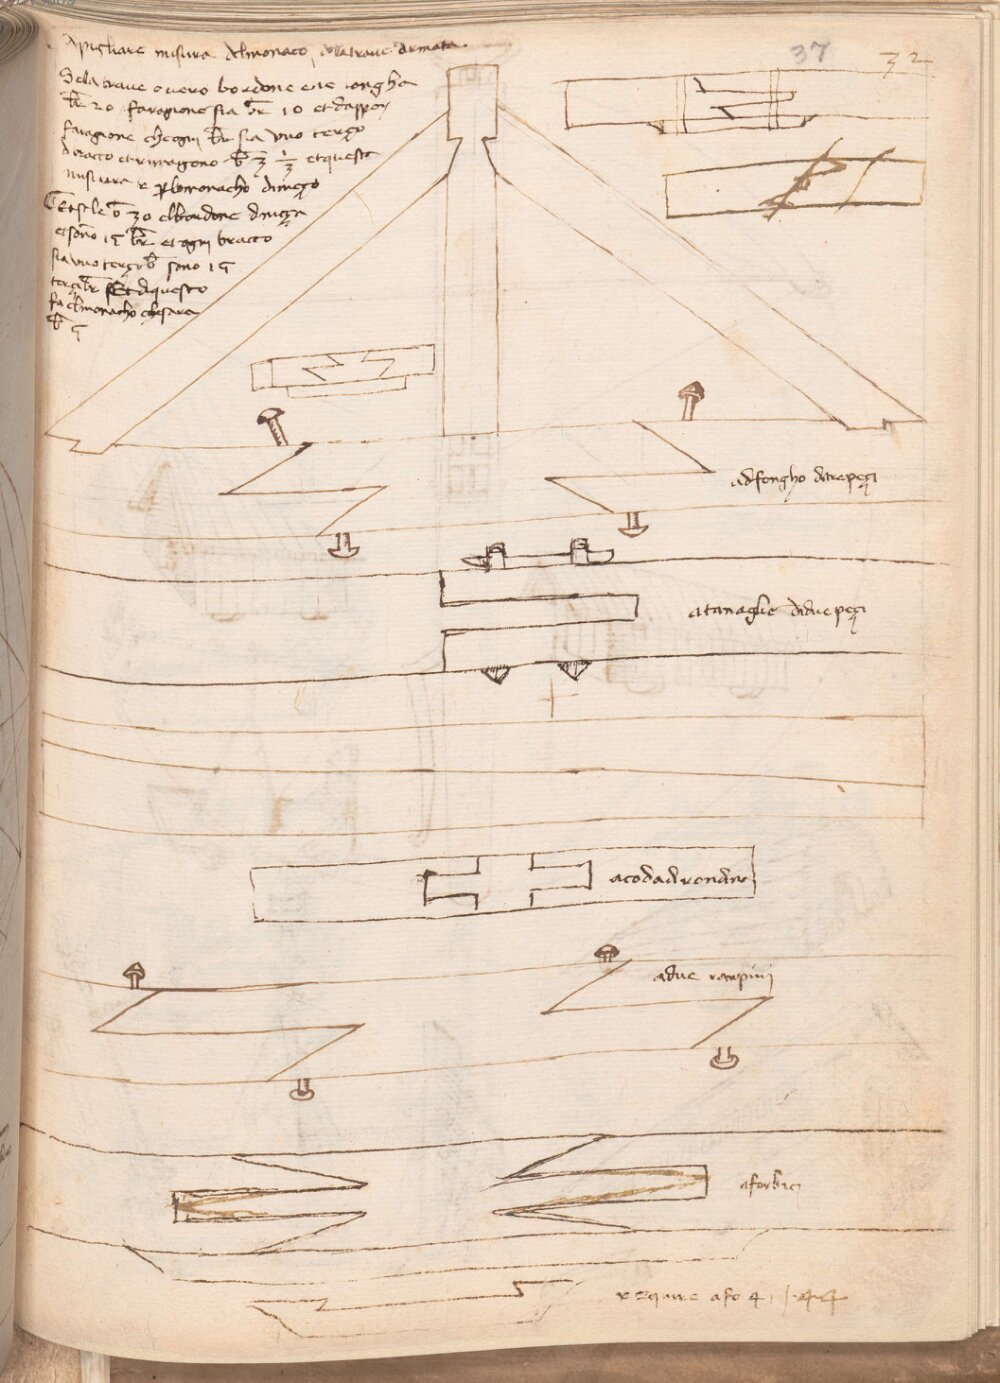 37
32
Apigliare misura delmonaco delatrave armata
Sela trave overo bordone ene longha
br 20 faragione sia br 10 et dapoy
faragione che ogni br sia uno terzo
bracco et rimagono br 3 1/3 et questa
misura e per lomonacho dimezo
Et se le br 30 elbordone dmeza
et sono 15 br et ogni bracco
sia uno terzo br sono 15
terzi br Et di questo
fa elmonacho che sara
br 5
adfongho ditre pezi
atanaglie didue pezi
acoda di rondine
adue rampini
aforbici
require afo 4 144